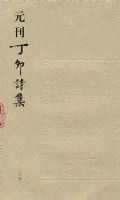 元刊丁卯詩集